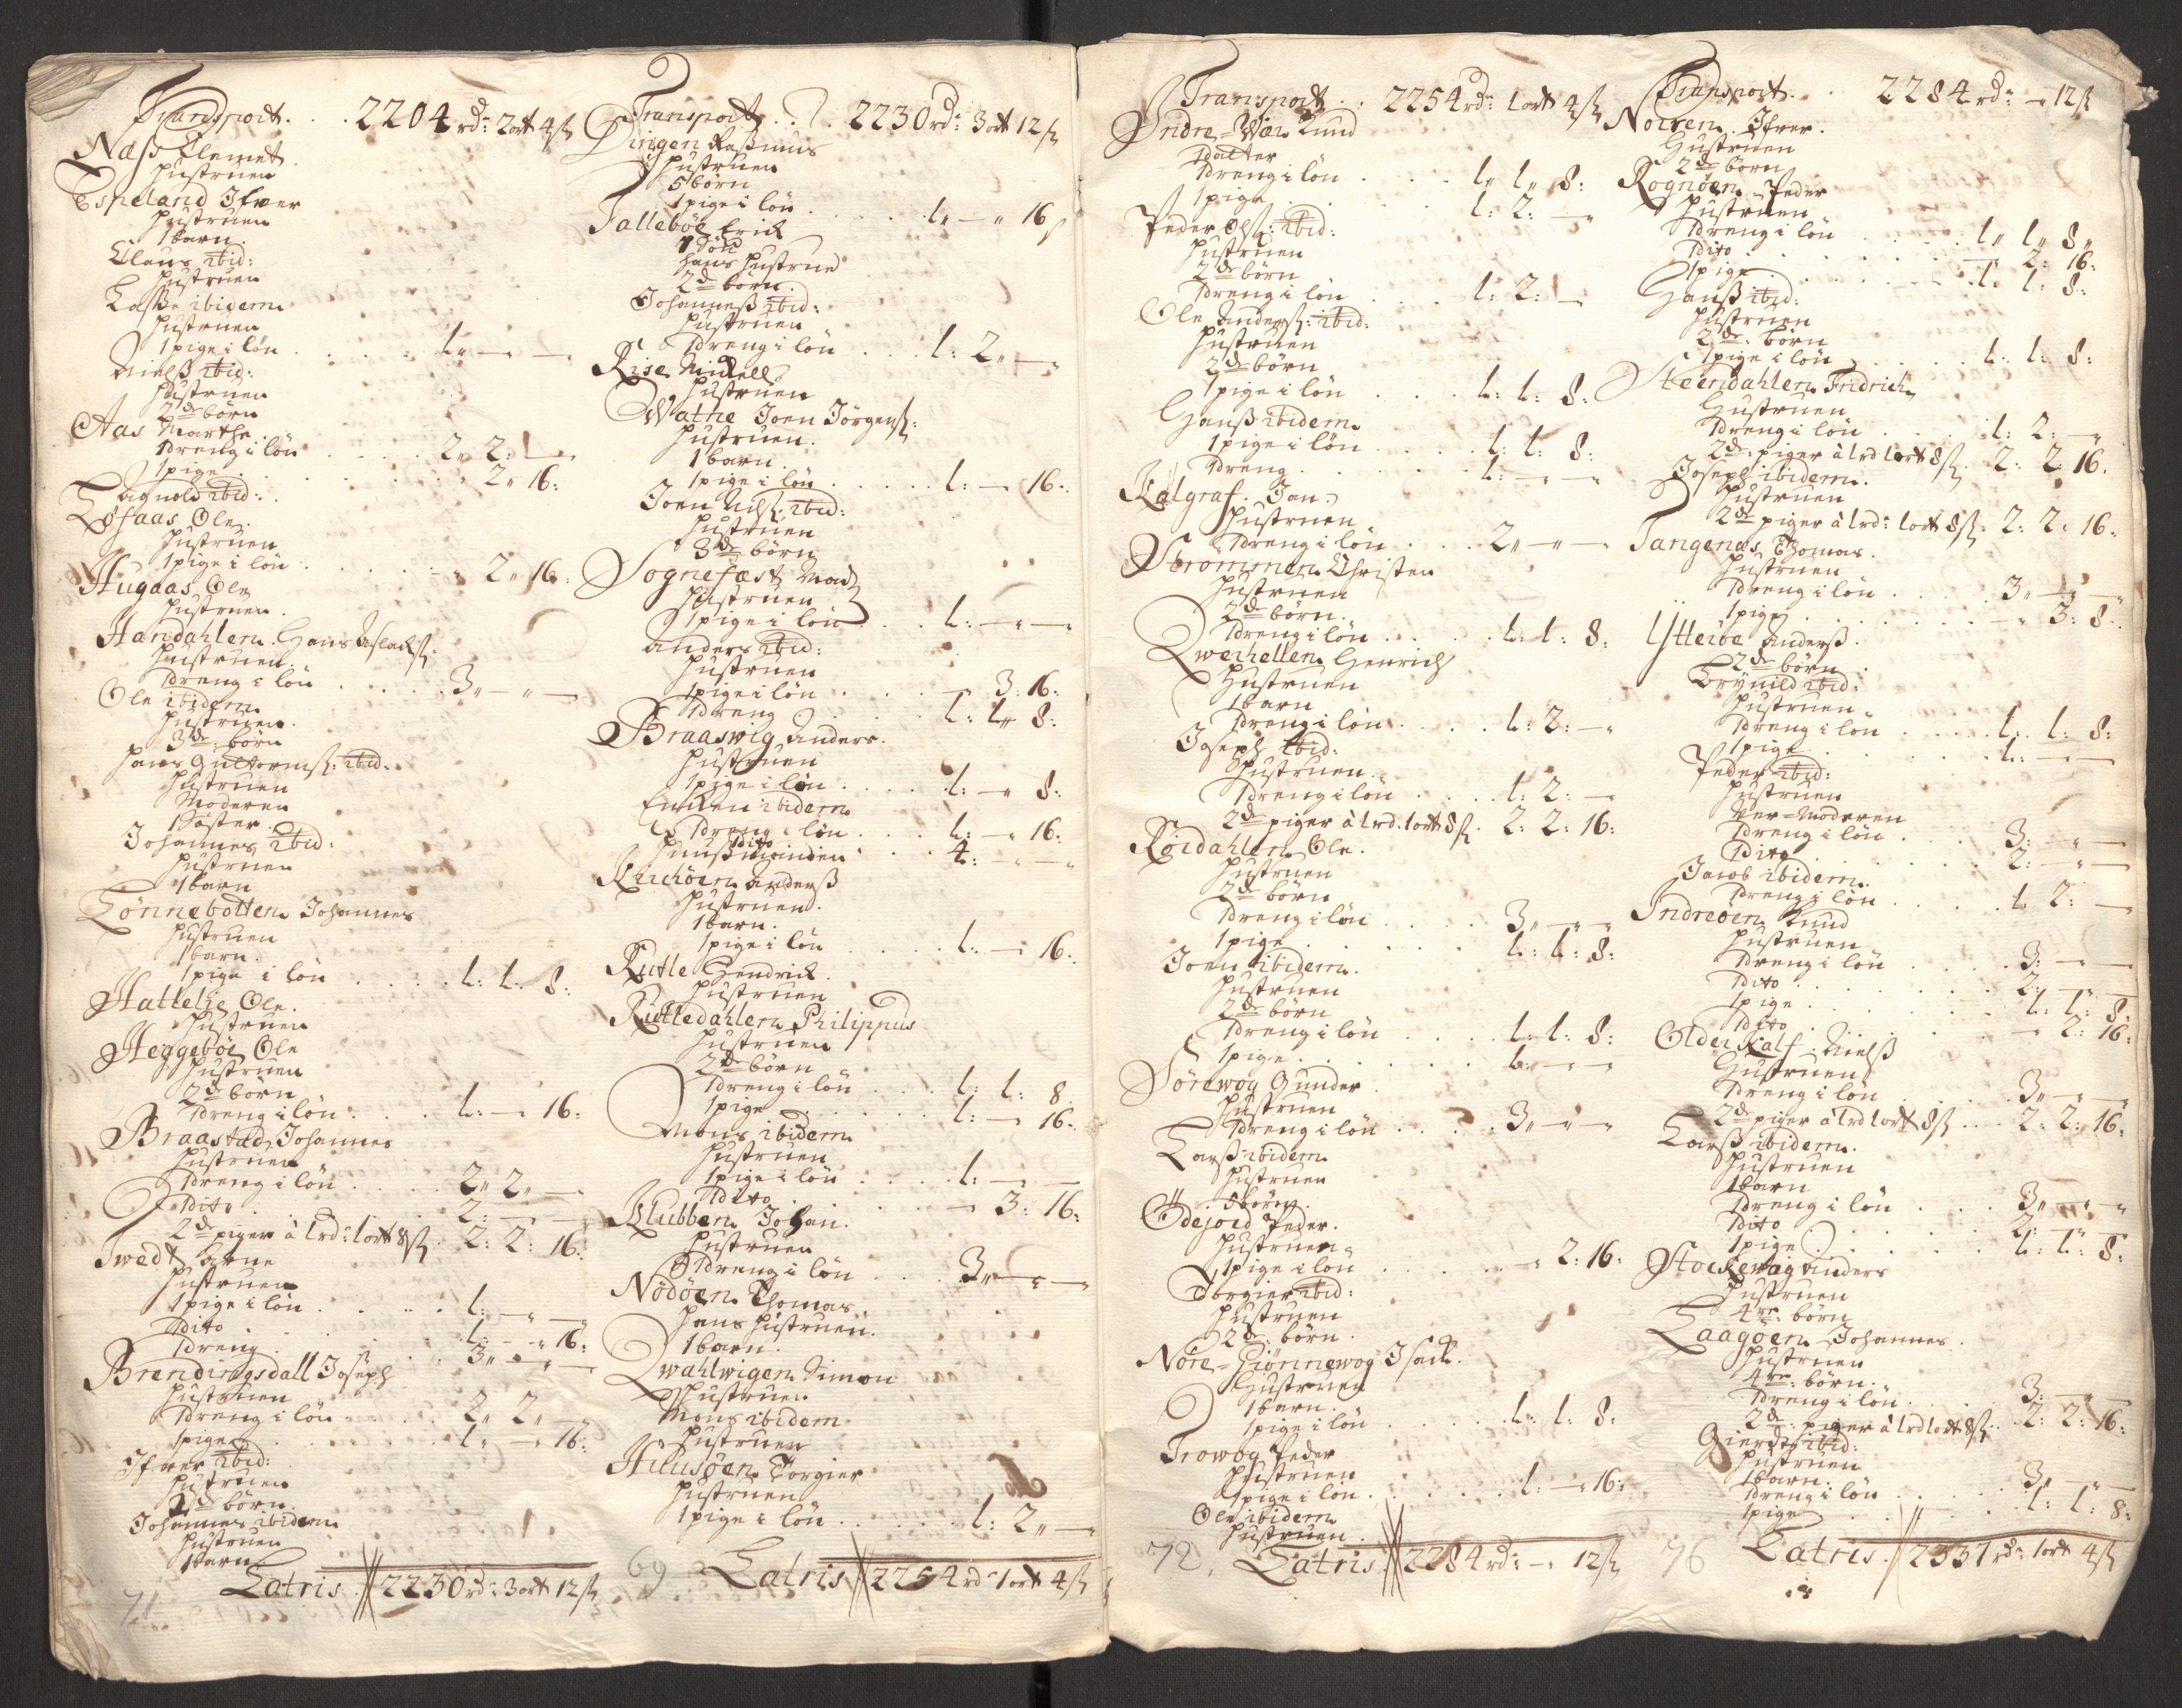 Transport . . 2204 rd: 2 ort 4 ß
Næss Clemet.
Hustruen
Espeland Ifver
Hustruen
1 barn.
Claus ibid:
Hustruen
Lasse ibidem
Hustruen
1 pige i løn . . . . 1 „ — —
Nielss ibid:
Hustruen
2de børn
Aas Marthe.
1 dreng i løn . . . . 2 „ 2: —
1 pige . . . . „ 2 „ 16:
Tagnold ibid: .
Løfaas Ole.
Hustruen
1 pige i løn . . . . „ 2 „ 16:
Hugaas Ole
Hustruen.
Handahlen. Hans Aslachs:
Hustruen.
1 dreng i løn . . . . 3 „ — „ —
Ole ibidem
Hustruen.
3de: børn
Hans Guttormss: ibid:
Hustruen
Moderen
1 Søster.
Johannes ibid:
Hustruen
1 barn
Lønnebotten. Johannes
Hustruen
1 barn.
1 pige i løn . . . . 1: 1: 8:
Hattelie Ole.
Hustruen
Heggebøe Ole
Hustruen
2de børn
1 dreng i løn . . . . 1: — 16:
Braastad Johannes
Hustruen
1 dreng i løn . . . . 2 „ 2 „ —
1 dito . . . . 2: — —
2de piger à 1 rd: 1 ort 8 ß . 2: 2: 16:
Twedt Arne
Hustruen
1 pige i løn . . . . 1: — „ —
1 dito . . . . 1: — „ 16:
1 dreng . . . . 3 „ — „ —
Brendingsdall Joseph
Hustruen
1 dreng i løn . . . . 2 „ 2 „ —
1 pige . . . . 1 „ — 16:
Ifver ibid:
Hustruen
2de børn.
Johannes ibidem
Hustruen
1 barn
Latris . 2230 rd: 3 ort 12 ß
71
Transport . . 2230 rd: 3 ort 12 ß
Dingen Rassmus
Hustruen
5 børn
1 pige i løn . . . . 1 „ — „ 16 ß
Tallebøe Erick
1 Søn
hans Hustrue
2de børn.
Johanness ibid:
Hustruen
1 dreng i løn . . . 1: 2 „ —
Rise Mickell
Hustruen
Wathe Joen Jørgens:
Hustruen.
1 barn.
1 pige i løn . . . . 1: — 16:
Joen Nils: ibid:
Hustruen
3de børn
Sognefæst Mads
Hustruen
1 pige i løn . . . 1: — „ —
Anders ibid:
Hustruen
1 pige i løn . . . . — 3: 16:
1 dreng . . . . 1: 1 „ 8:
Braaswig Anders.
Hustruen
1 pige i løn . . . . 1: — „ 8:
Encken ibidem
1 dreng i løn . . . . 1: — „ 16:
1 dito
Huussmanden . . . 4: — „ — „
Kirchøen. Anderss
Hustruen.
1 barn.
1 pige i løn . . . . 1: — „ 16:
Rutle Hendrick.
Hustruen
Rutledahlen Philippus
Hustruen
2de børn
1 dreng i løn . . . 1: 1: 8
1 pige . . . . 1: — 16:
Mons ibidem
Hustruen
1 pige i løn . . . . 1: — —
1 dito . . . . — 3: 16:
Klubben. Johan.
Hustruen
1 dreng i løn . . . 3 „ — „ —
Nødøen. Thomas.
Hans Hustruen.
1 barn.
Qwahlwigen. Simon
Hustruen
Mons ibidem
Hustruen
Hiusøen. Torgier
Hustruen
1 pige i løn . . . . 1: 2 „ —
69 Latris . 2254 rd: 1 ort 4 ß
Transport . . 2254 rd: 1 ort 4 ß
Indre = Wær. Knud
1 datter
1 dreng i løn . . . . 1 „ 1 „ 8:
1 pige . . . . 1: 2: — „
Peder Ols: ibid:
Hustruen
2de børn
1 dreng i løn . . . . 1: 2: —
Ole Anders: ibid:
Hustruen
2de børn
1 pige i løn . . . . 1: 1: 8:
Hanss ibidem
1 pige i løn . . . . 1: 1: 8:
1 dreng . . . . 1: — „ —
Kalgraf. Jan
Hustruen
1 dreng i løn . . . . 2 „ — „ —
Strommen. Christen
Hustruen
2de børn.
1 dreng i løn . . . . 1: 1: 8:
Qwerhellen. Henrich
Hustruen
1 barn
1 dreng i løn . . . . 1: 2: — „
Joseph ibid:
Hustruen.
1 dreng i løn . . . . 1: 2: —
2de piger à 1 rd: 1 ort 8 ß . 2: 2: 16:
Røidahlen. Ole.
Hustruen
2de børn
1 dreng i løn . . . . 3 „ — „ —
1 pige . . . . 1: 1: 8:
Joen ibidem.
Hustruen
2de børn
1 dreng i løn . . . . 1: 1: 8:
1 pige . . . . 1: — „ —
Sørewog Gunder
Hustruen
1 dreng i løn . . . . 3 „ — „ —
Larss ibidem
Hustruen
5 børn.
Ødejord Peder.
Hustruen
1 pige i løn . . . . — „ 2: 16:
Torgier ibid:
Hustruen
2de: børn.
Nøre = Giønnewog Isach.
Hustruen
1 barn.
1 pige i løn . . . . 1: 1: 8:
Trowog Peder
Hustruen
1 pige i løn . . . . 1: — „ 16:
Ole ibidem
Hustruen.
72. Latris . 2284 rd: — „ 12 ß
Transport . . 2284 rd: — „ 12 ß
Noreen. Ifver.
Hustruen
2de børn
Rognøen. Peder
Hustruen
1 dreng i løn . . . . 1 „ 1 „ 8 „
1 dito . . . . — 2: 16:
1 pige . . . . 1: 1: 8:
Hanss ibid:
Hustruen
2de: børn
1 pige i løn . . . . 1: 1: 8:
Steendahlen. Fridrich
Hustruen.
1 dreng i løn . . . . 1: 2: — „
2de: piger à 1 rd 1 ort 8 ß . 2: 2: 16.
Joseph ibidem.
Hustruen
2de piger à 1 rd: 1 ort 8 ß . 2: 2: 16:
Tangenæs Thomas.
Hustruen
1 dreng i løn . . . . 3 „ — „ —
1 pige . . . . — „ 3: 8:
Ytterøe Anderss.
2de børn.
Brynild ibid:
Hustruen.
1 dreng i løn . . . . 1: 1: 8:
1 pige . . . . 1: — „ —
Peder ibid:
Hustruen
Ver = Moderen
1 dreng i løn . . . . 3: — „ —
1 dito . . . . 2: — „ —
Jacob ibidem
1 dreng i løn . . . . 1: 2: —
Indreøen. Knud
Hustruen
1 dreng i løn . . . . 3: — —
1 dito . . . . 2: — —
1 pige . . . . 1: 1: 8:
1 dito . . . . — 2: 16:
Olderkalf. Nielss
Hustruen
1 dreng i løn . . . . 3 „ — „ —
2de piger à 1 rd 1 ort 8 ß . . . 2: 2: 16:
Larss ibidem.
Hustruen
1 barn
1 dreng i løn . . . 3 „ — „ —
1 dito . . . . 2: — „ —
1 pige . . . . 1: 1: 8:
Stockewog Anders
Hustruen
4re: børn
Laagøen. Johannes.
Hustruen
4re: børn.
1 dreng i løn . . . . 3: — „ —
2de: piger à 1 rd 1 ort 8 ß . . 2: 2: 16:
Giert ibid:
Hustruen
1 barn.
1 dreng i løn . . . . 3 „ — „ —
1 pige . . . . 1: 1: 8:
76 Latris . 2337 rd: 1 ort 4 ß